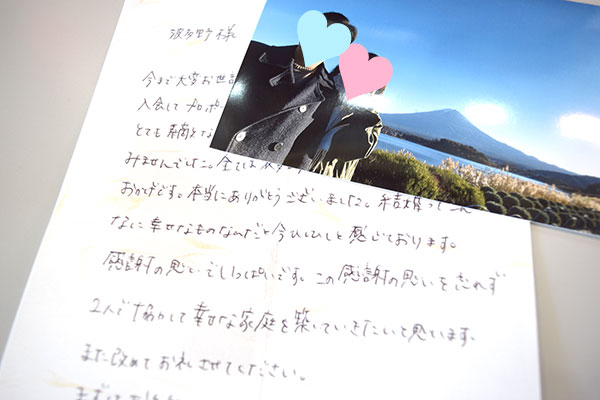 波多野様
今まで大変お世話
入会して プロポー
とても素敵な
みませんでした。全ては
おかげです。本当にありがとうございました。結婚って
なに幸せなものなんだと今ひしひしと感じております。
感謝の思いでいっぱいです。この感謝の思いを忘れず
2人で協力して幸せな家庭を築いていきたいと思います。
また改めてお礼させてください。
まずは